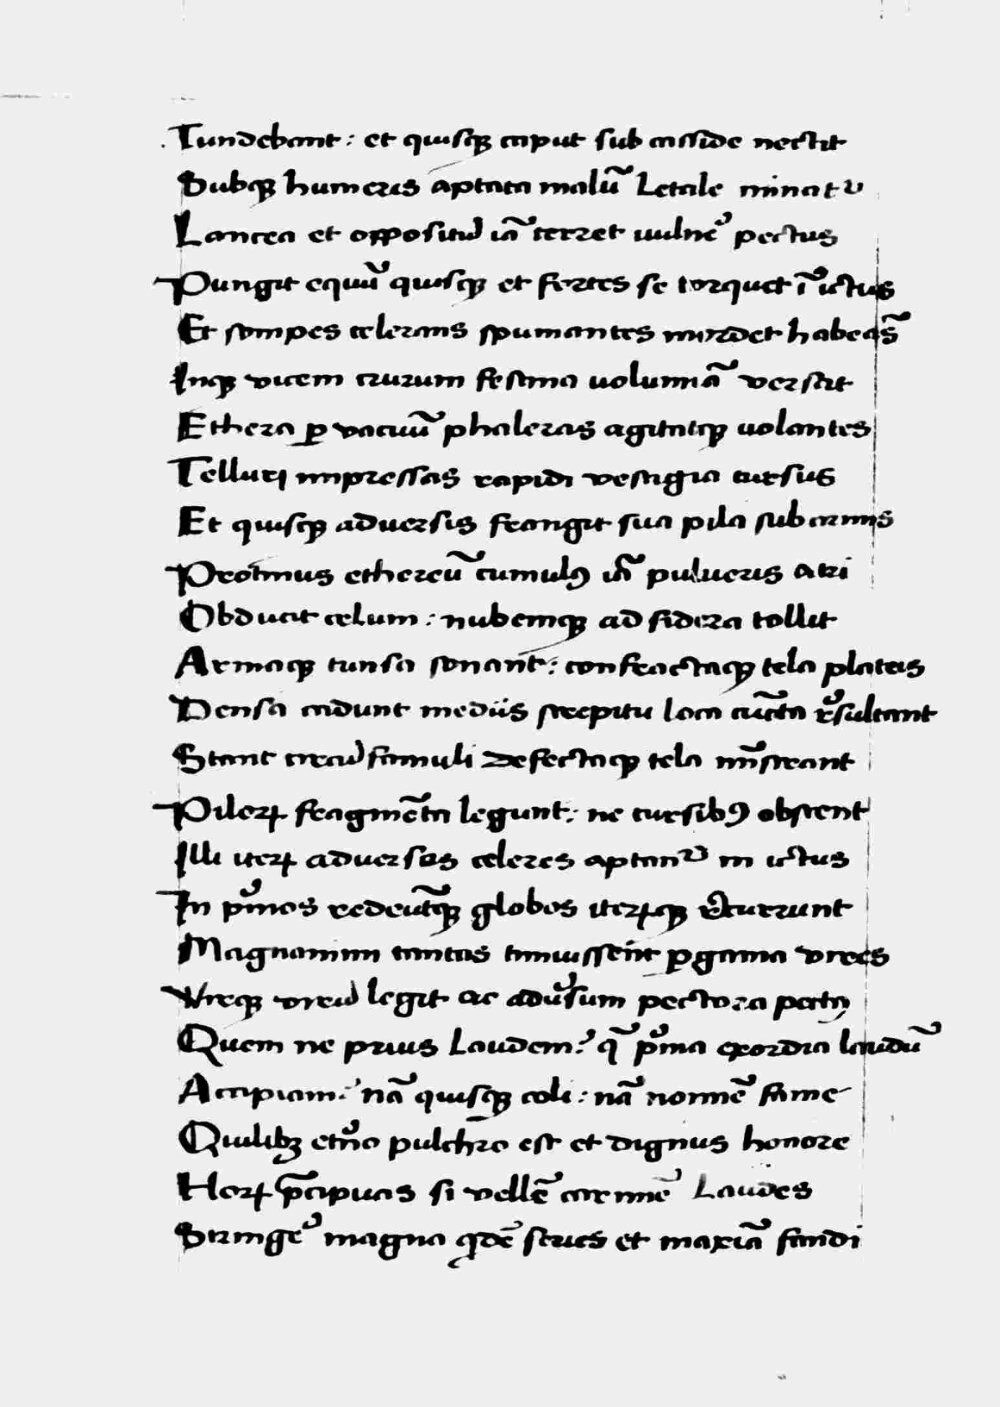 Tundebant: et quisq꜄ caput sub casside nectit
Subq꜄ humeris aptata malũ Letale minatʳ
Lancea et oppositũ iã terret uulnẽ pectus
Pungit equũ quisq꜄ et fortes se torquet ĩ ictus
Et sompes celerans spumantes mordet habeãs
Inq꜄ vicem crurum festina uolumiã versat
Ethera ꝑ vacuũ phaleras agitatq꜄ uolantes
Telluri impressas rapidi vestigia cursus
Et quisq꜄ aduersis frangit sua pila sub armis
Protinus ethereũ cumulꝰ iã pulueris atri
Obducit celum: nubemq꜄ ad sidera tollit
Armaq꜄ tunsa sonant: confractaq꜄ tela plateis
Densa cadunt mediis strepitu loca cũcta rẽsultant
Stant circũ famuli defectaq꜄ tela mĩstrant
Pilorꝝ fragmẽta legunt: ne cursibꝰ obstent
Illi iterꝝ aduersos celeres aptantʳ in ictus
In pĩmos redeũtq꜄ globos iterꝝq꜄ rẽcurrunt
Magnanimi tantas timuissent ꝑgama vires
Virq꜄ virũ legit ac adũsum pectora
Quem ne prius Laudem? qͣ pĩma exordia laudũ
Accipiam? nã quisq꜄ coli: nã nomẽ fame
Quilibꝫ etñno pulchro est et dignus honore
Horꝝ p̃cipuas si vellẽ carmiẽ Laudes
Stringẽ magna qͥdẽ series et maxiã fandi